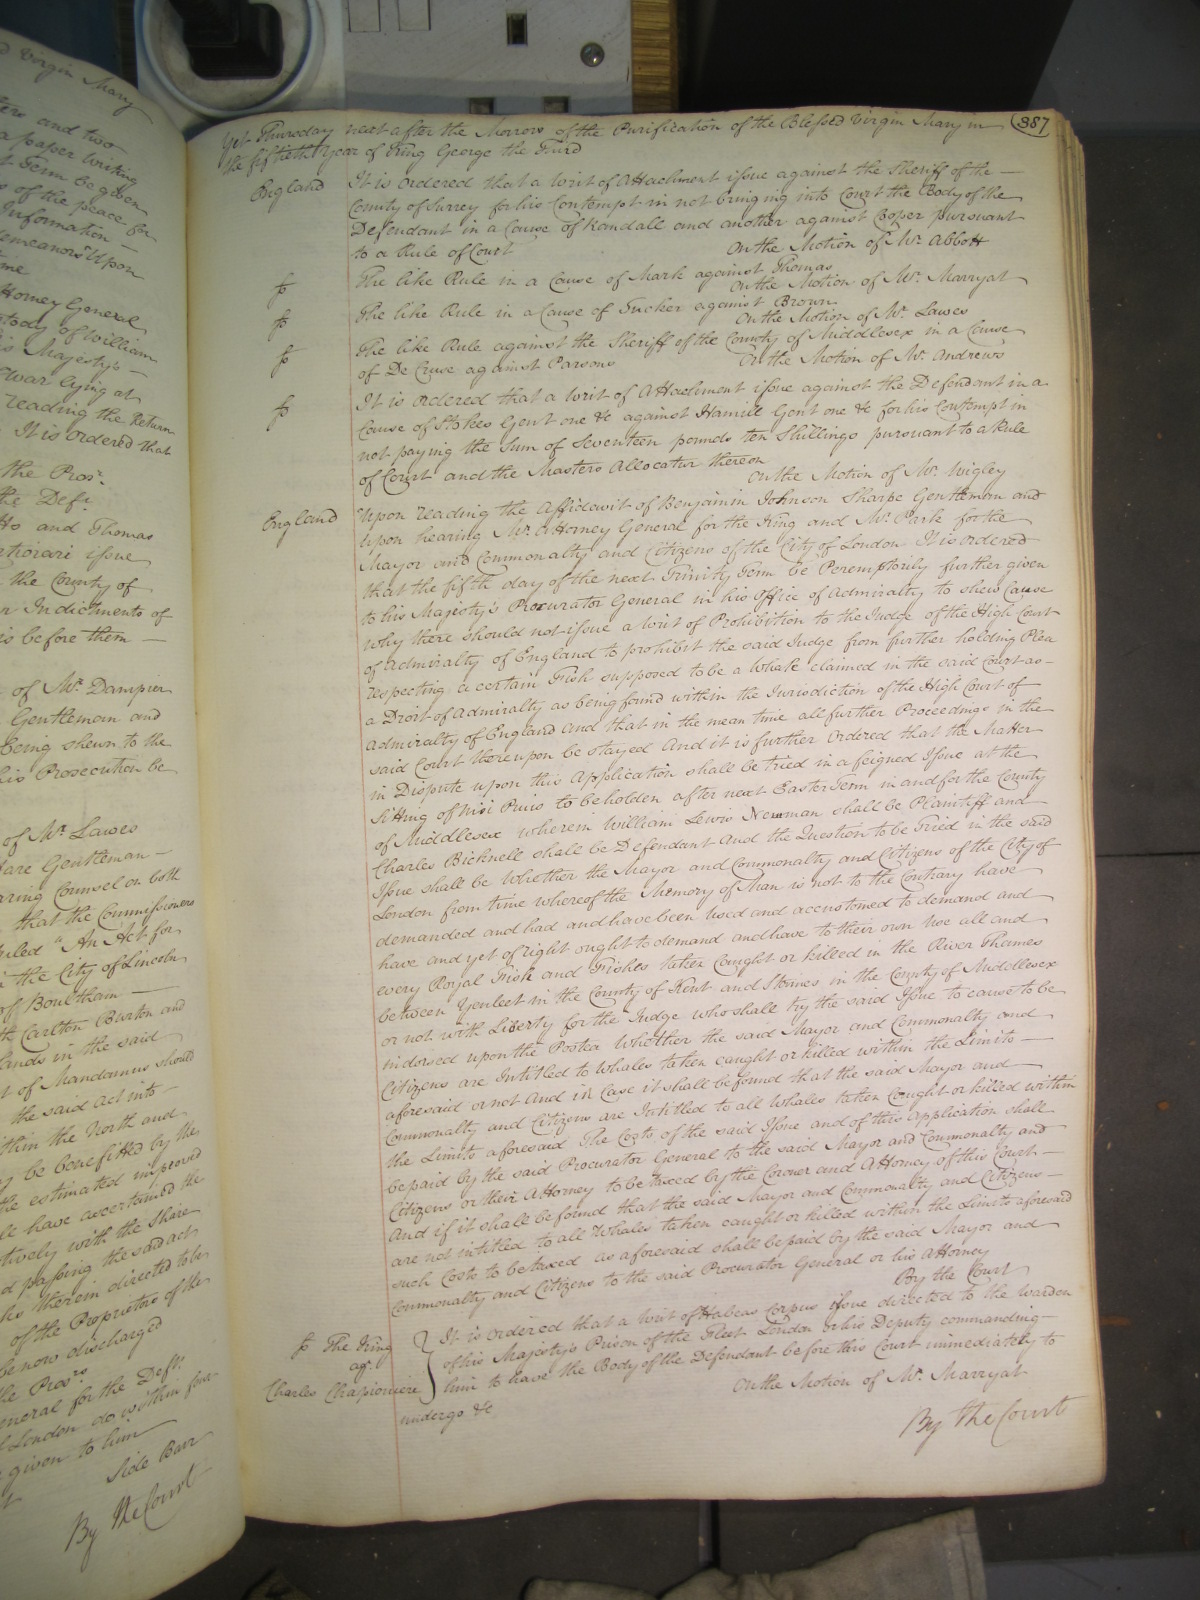 d Virgin Mary
ters and two
a paper writing
t Term be given
s of the peace for
Information
demeanors Upon
me
Attorney General
stody of William
is Majesty's
War lying at
reading the Return
It is Ordered that
the Prosr.
the Deft.
tts and Thomas
rtiorari issue
the County of
r Indictments of
is before them
of Mr. Dampier
Gentleman and
being shewn to the
his Prosecution be
of Mr. Lawes
fare Gentleman
aring Counsel on both
that the Commissioners
tuled "An Act for
the City of Lincoln
of Boultham
th Carlton Burton and
lands in the said
t of Mandamus should
the said act into
ithin the North and
y be benefitted by the
the estimated improved
le have ascertained the
tively with the Share
d passing the said act
ks therein directed to be
of the Proprietors of the
be now discharged
the Prosrs.
eneral for the Deft.
of London do within four
given to him
Side Barr
By the Court
387
Yet Thursday next after the Morrow of the Purification of the Blessed Virgin Mary in
the fiftieth Year of King George the Third
England It is Ordered that a Writ of Attachment issue against the Sheriff of the
County of Surrey for his Contempt in not bringing into Court the Body of the
Defendant in a Cause of Randall and another against Cooper pursuant
to a Rule of Court On the Motion of Mr. Abbott
The like Rule in a Cause of Mark against Thomas
On the Motion of Mr. Marryat
The like Rule in a Cause of Tucker against Brown
On the Motion of Mr. Lawes
The like Rule against the Sheriff of the County of Middlesex in a Cause
of De Cruse against Parsons On the Motion of Mr. Andrews
It is Ordered that a Writ of Attachment issue against the Defendant in a
Cause of Stokes Gent one &c against Hamill Gent one &c for his Contempt in
not paying the Sum of Seventeen pounds ten Shillings pursuant to a Rule
of Court and the Masters Allocatur thereon
On the Motion of Mr. Wigley
England Upon reading the Affidavit of Benjamin Johnson Sharpe Gentleman and
Upon hearing Mr. Attorney General for the King and Mr. Park for the
Mayor and Commonalty and Citizens of the City of London It is Ordered
that the fifth day of the next Trinity Term be Peremptorily further given
to his Majesty's Procurator General in his Office of Admiralty to shew Cause
why there should not issue a Writ of Prohibition to the Judge of the High Court
of Admiralty of England to prohibit the said Judge from further holding Plea
respecting a certain Fish supposed to be a Whale claimed in the said Court as
a Droit of Admiralty as being found within the Jurisdiction of the High Court of
Admiralty of England And that in the mean time all further Proceedings in the
said Court thereupon be stayed And it is further Ordered that the Matter
in Dispute upon this Application shall be tried in a feigned Issue at the
Sitting of Nisi Prius to be holden after next Easter Term in and for the County
of Middlesex wherein William Lewis Newman shall be Plaintiff and
Charles Bicknell shall be Defendant And the Question to be Tried in the said
Issue shall be Whether the Mayor and Commonalty and Citizens of the City of
London from time whereof the Memory of Man is not to the Contrary have
demanded and had and have been used and accustomed to demand and
have and yet of right ought to demand and have to their own Use all and
every Royal Fish and Fishes taken Caught or killed in the River Thames
between Yenleet in the County of Kent and Staines in the County of Middlesex
or not with Liberty for the Judge who shall try the said Issue to cause to be
indorsed upon the Postea Whether the said Mayor and Commonalty and
Citizens are Intitled to Whales taken caught or killed within the Limits
aforesaid or not And in Case it shall be found that the said Mayor and
Commonalty and Citizens are Intitled to all Whales taken Caught or killed within
the Limits aforesaid The Costs of the said Issue and of this Application shall
be paid by the said Procurator General to the said Mayor and Commonalty and
Citizens or their Attorney to be taxed by the Coroner and Attorney of this Court
And if it shall be found that the said Mayor and Commonalty and Citizens
are not intitled to all Whales taken caught or killed within the Limits aforesaid
such Costs to be taxed as aforesaid shall be paid by the said Mayor and
Commonalty and Citizens to the said Procurator General or his Attorney
By the Court
The King
agt.
Charles Chapioniere
It is Ordered that a Writ of Habeas Corpus issue directed to the Warden
of his Majesty's Prison of the Fleet London or his Deputy commanding
him to have the Body of the Defendant before this Court immediately to
undergo &c On the Motion of Mr. Marryat
By the Court